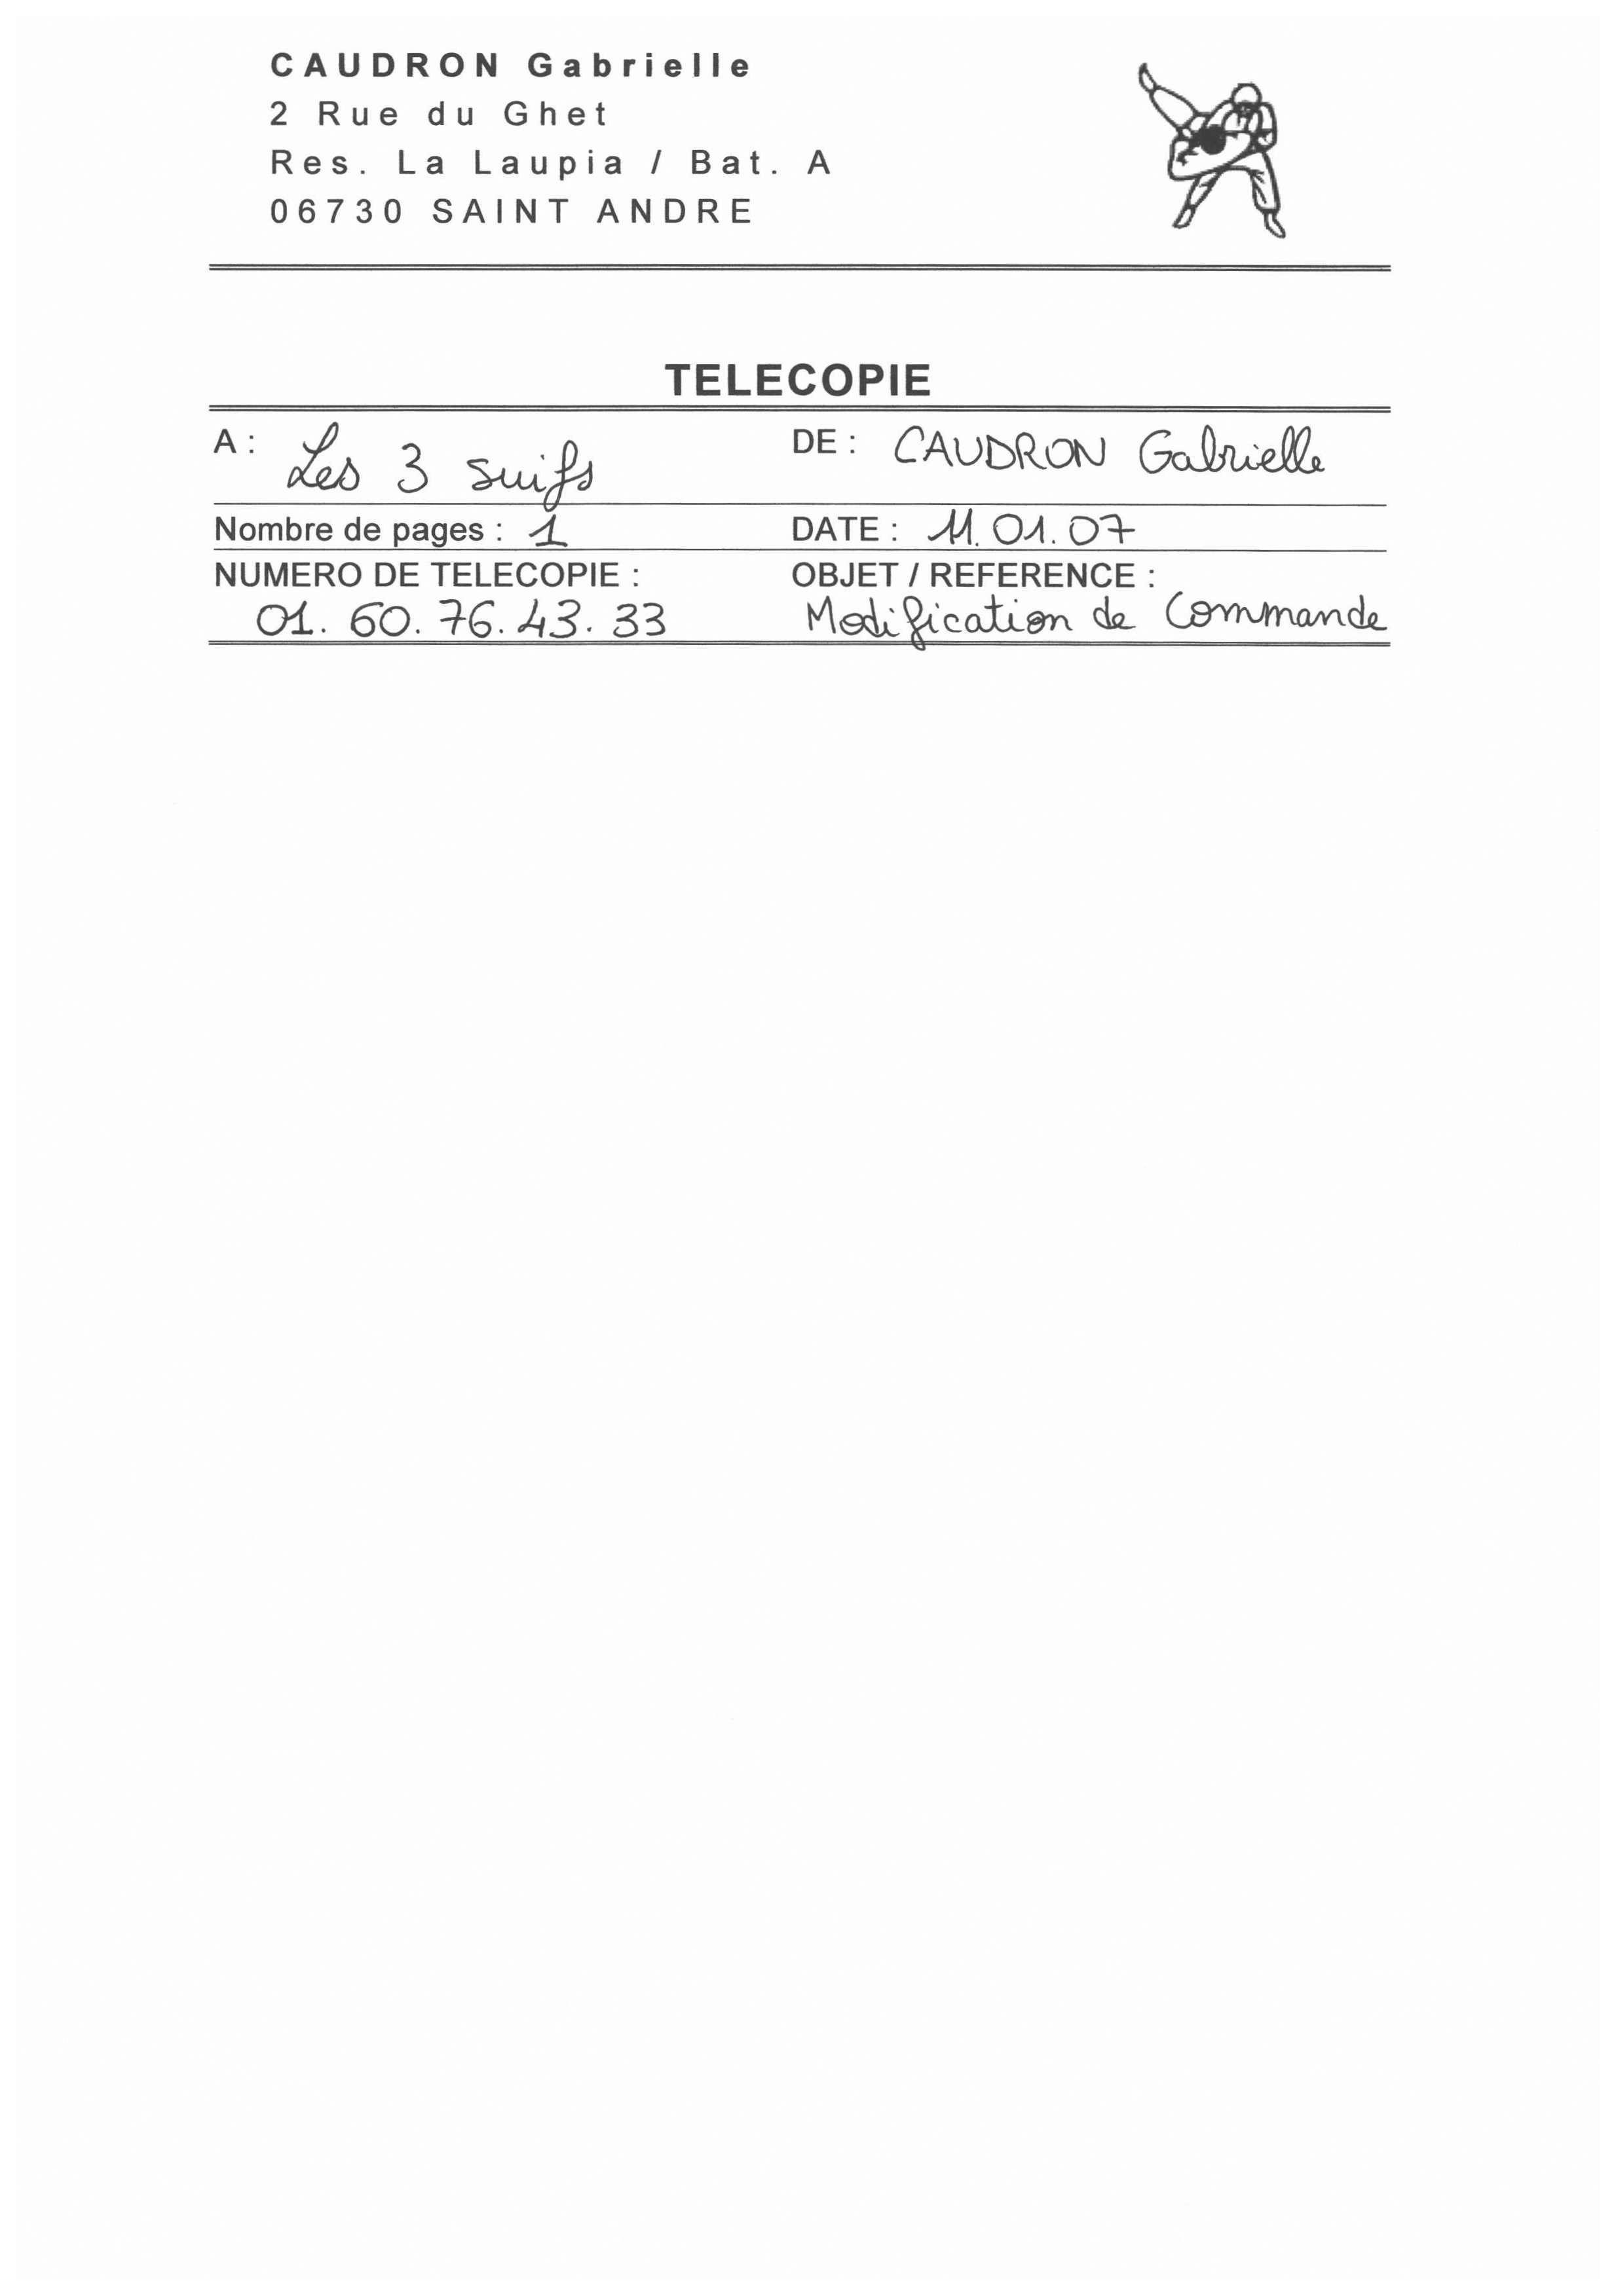 CAUDRON Gabrielle
2 Rue du Ghet
Res. La Laupia / Bat. A
06730 SAINT ANDRE
TELECOPIE
A : Les 3 suifs
DE : CAUDRON Gabrielle
Nombre de pages : 1
DATE : 11.01.07
NUMERO DE TELECOPIE :
01. 60. 76. 43. 33
OBJET / REFERENCE :
Modification de Commande